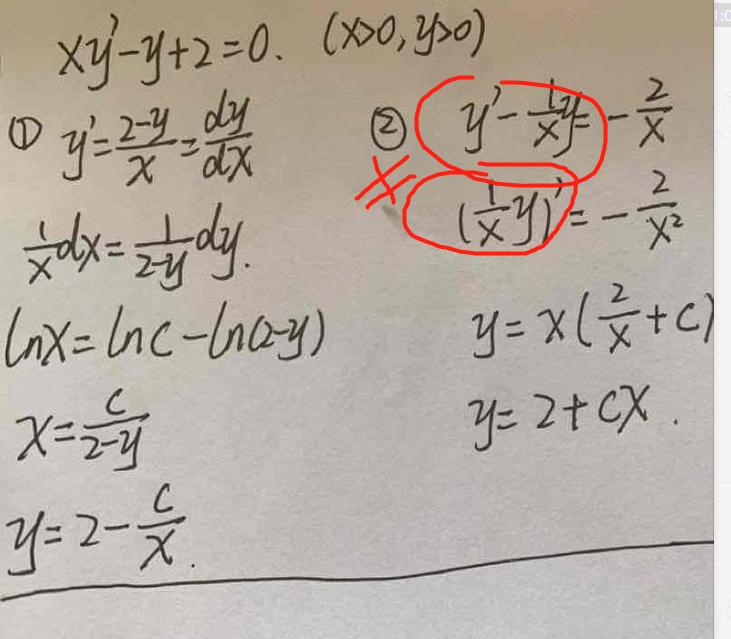 xy'-y+2=0. (x>0, y>0)
① y'=\frac{2-y}{x}=\frac{dy}{dx}
\frac{1}{x}dx=\frac{1}{2-y}dy.
lnx=lnc-ln(2-y)
x=\frac{c}{2-y}
y=2-\frac{c}{x}.
② y'-\frac{1}{x}y=-\frac{2}{x}
(\frac{1}{x}y)'=-\frac{2}{x^2}
y=x(\frac{2}{x}+c)
y=2+cx.